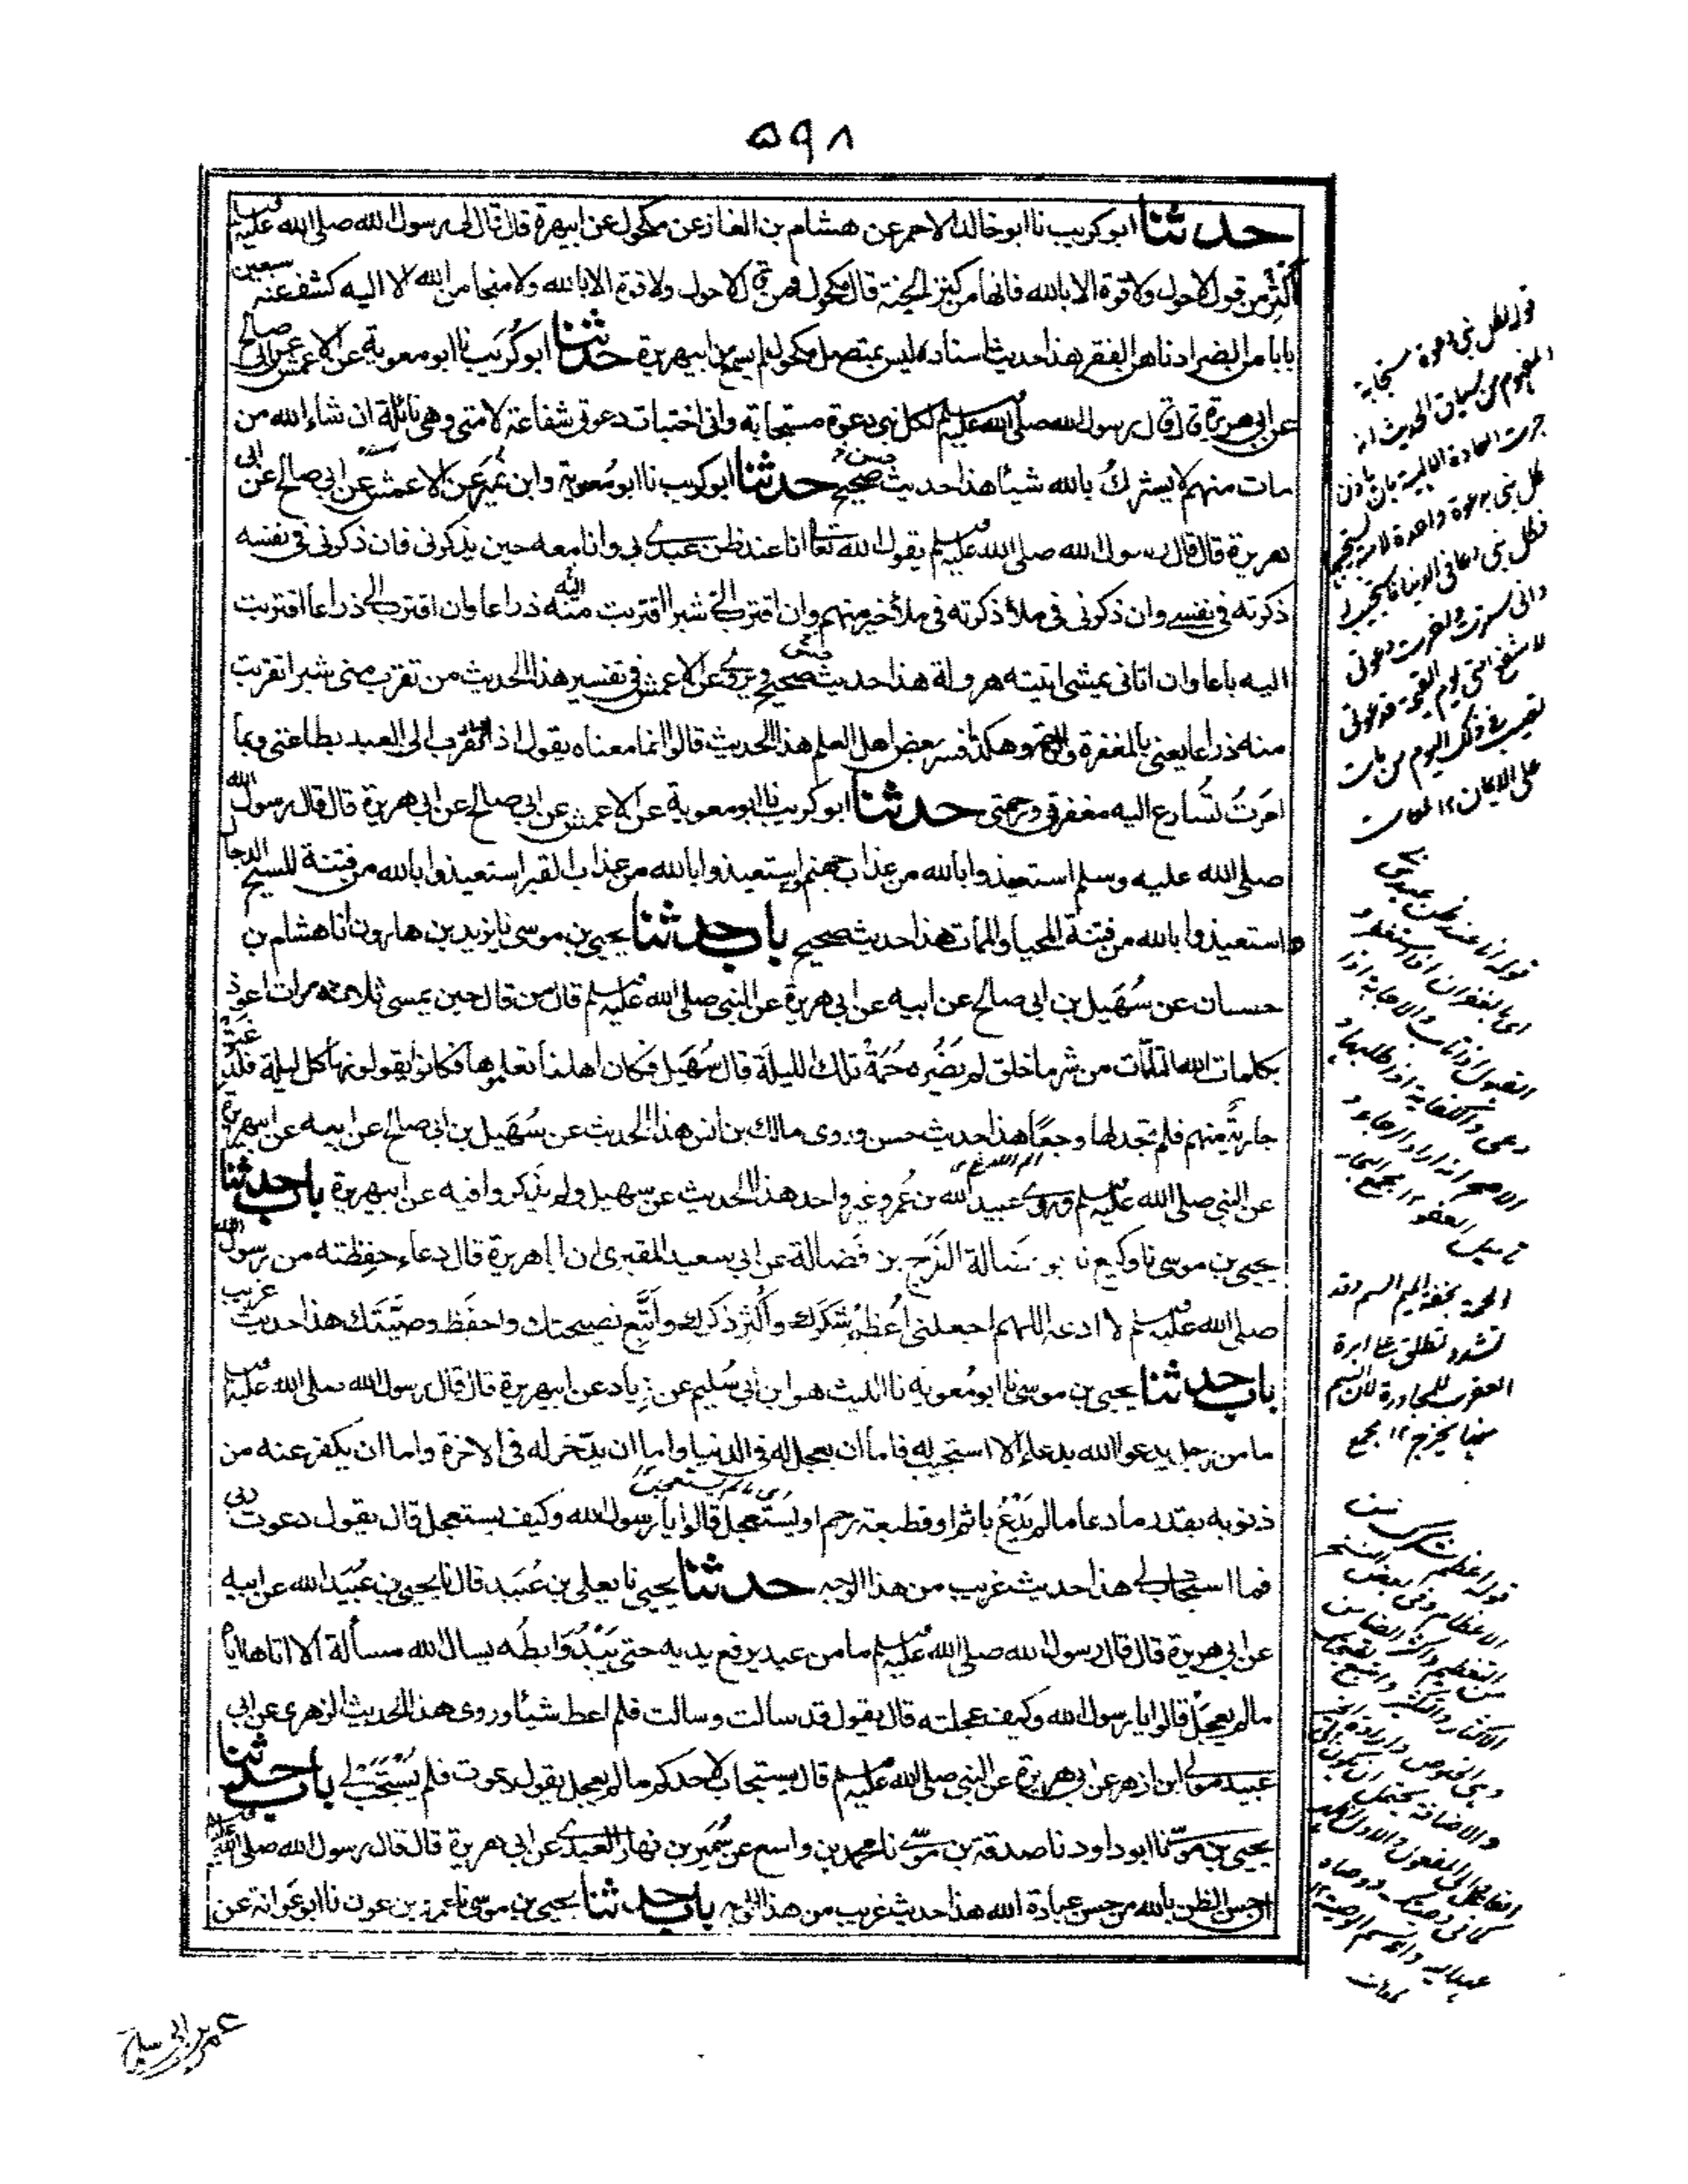 ۵۹۸
حدثنا ابو كريب نا ابو خالد الاحمر عن هشام بن الغاز عن مكحول عن ابي هريرة قال قال لى رسول الله صلى الله عليه وسلم
أكثر من قول لاحول ولا قوة الا بالله فانها من كنز الجنة قال مكحول فمن قال لاحول ولا قوة الا بالله ولا منجا من الله الا اليه كشف عنه سبعين
بابا من الضر ادناهن الفقر هذا حديث اسناده ليس بمتصل مكحول لم يسمع من ابي هريرة حدثنا ابو كُرَيب نا ابو معوية عن الاعمش عن ابى صالح
عن ابى هريرة قال قال رسول الله صلى الله عليه وسلم لكل نبى دعوة مستجابة وانى اختبات دعوتى شفاعة لامتى وهى نائلة ان شاء الله من
مات منهم لا يشرك بالله شيئا هذا حديث حسن صحيح حدثنا ابو كريب نا ابو مُعوية وابن نُمَير عن الاعمش عن ابى صالح عن ابى
هريرة قال قال رسول الله صلى الله عليه وسلم يقول الله تعالى انا عند ظن عبدى بى وانا معه حين يذكرنى فان ذكرنى فى نفسه
ذكرته فى نفسى وان ذكرنى فى ملأ ذكرته فى ملأ خير منهم وان اقترب الى شبرا اقتربت منه ذراعا وان اقترب الى ذراعا اقتربت
اليه باعا وان اتانى يمشى اتيته هرولة هذا حديث حسن صحيح ويروى عن الاعمش فى تفسير هذا الحديث من تقرب منى شبرا تقربت
منه ذراعا يعنى بالمغفرة والرحمة وهكذا فسر بعض اهل العلم هذا الحديث قالوا انما معناه يقول اذا تقرب الى العبد بطاعتى وبما
امرتُ تُسارع اليه مغفرتى ورحمتى حدثنا ابو كريب نا ابو معوية عن الاعمش عن ابى صالح عن ابى هريرة قال قال رسول الله
صلى الله عليه وسلم استعيذوا بالله من عذاب جهنم واستعيذوا بالله من عذاب القبر استعيذوا بالله من فتنة المسيح الدجال
واستعيذوا بالله من فتنة المحيا والمات هذا حديث صحيح باب حدثنا يحيى بن موسى نا يزيد بن هارون انا هشام بن
حسان عن سُهَيل بن ابى صالح عن ابيه عن ابى هريرة عن النبى صلى الله عليه وسلم قال من قال حين يمسى ثلاث مرات اعوذ
بكلمات الله التامّات من شر ما خلق لم يَضُره حُمَةٌ تلك الليلة قال سُهَيل فكان اهلنا تعلموها فكانوا يقولونها كل ليلة فلدغت
جاريةٌ منهم فلم تجد لها وجعًا هذا حديث حسن وروى مالك بن انس هذا الحديث عن سُهَيل بن ابى صالح عن ابيه عن ابي هريرة
عن النبى صلى الله عليه وسلم وروى عبيد الله بن عُمَر وغير واحد هذا الحديث عن سهيل ولم يذكروا فيه عن ابي هريرة باب حدثنا
يحيى بن موسى نا وكيع نا ابو فضالة الفَرَج بن فَضالة عن ابى سعيد المقبرى ان اباهريرة قال دعاء حفِظته من رسول الله
صلى الله عليه وسلم لا ادعه اللهم اجعلنى اُعظِم شُكرَك واُكثِر ذكرك واَتَّبِع نصيحتك واحفَظ وصيّتَك هذا حديث غريب
باب حدثنا يحيى بن موسى نا ابو مُعوية نا الليث هو ابن ابى سُليم عن زياد عن ابي هريرة قال قال رسول الله صلى الله عليه وسلم
ما من رجل يدعو الله بدعاء الا استجيب له فاما ان يعجل له فى الدنيا واما ان يدّخر له فى الاخرة واما ان يكفر عنه من
ذنوبه بقدر ما دعا ما لم يَدْعُ باثم او قطيعة رحم او يستعجل قالوا يا رسول الله وكيف يستعجل قال يقول دعوت ربى
فما استجاب لى هذا حديث غريب من هذا الوجه حدثنا يحيى نا يعلى بن عُبَيد قال نا يحيى بن عُبَيد الله عن ابيه
عن ابى هريرة قال قال رسول الله صلى الله عليه وسلم ما من عبد يرفع يديه حتى يَبْدُوَ ابطُه يسال الله مسألة الا اتاها اياه
ما لم يعجل قالوا يا رسول الله وكيف عجلته قال يقول قد سالت وسالت فلم اعط شيئا وروى هذا الحديث الزهرى عن ابى
عبيد مولى ابن ازهر عن ابى هريرة عن النبى صلى الله عليه وسلم قال يستجاب لاحدكم ما لم يعجل يقول دعوت فلم يُسْتَجَب لى باب حدثنا
يحيى بن موسى نا ابو داود نا صدقة بن موسى نا محمد بن واسع عن سُمَير بن نهار العبدى عن ابى هريرة قال قال رسول الله صلى الله عليه وسلم
ان حسن الظن بالله من حسن عبادة الله هذا حديث غريب من هذا الوجه باب حدثنا يحيى بن موسى نا عمرو بن عون نا ابو عَوانة عن
قوله لكل نبى دعوة مستجابة
المفهوم من سياق الحديث انه
جرت العادة الالهية بان ياذن
كل نبى بدعوة واحدة لامته يستجيبها
فكل نبى دعا فى الدنيا فاستجيب له
وانى سترت واخرت دعوتى
لاشفع امتى يوم القيمة فدعوتى
تصيب فى ذلك اليوم من مات
على الايمان ۱۲ لمعات
قوله انا عند ظن عبدى بى
اى بالغفران اذا استغفر و
القبول اذا تاب والاجابة اذا
دعى والكفاية اذا طلبها و
الاصح انه اراد الرجاء و
تاميل العفو ۱۲ مجمع البحار
الحمة بخفة الميم السم وقد
تشدد تطلق على ابرة
العقرب للمجاورة لان السم
منها يخرج ۱۲ مجمع
عمر بن ابى سلمة